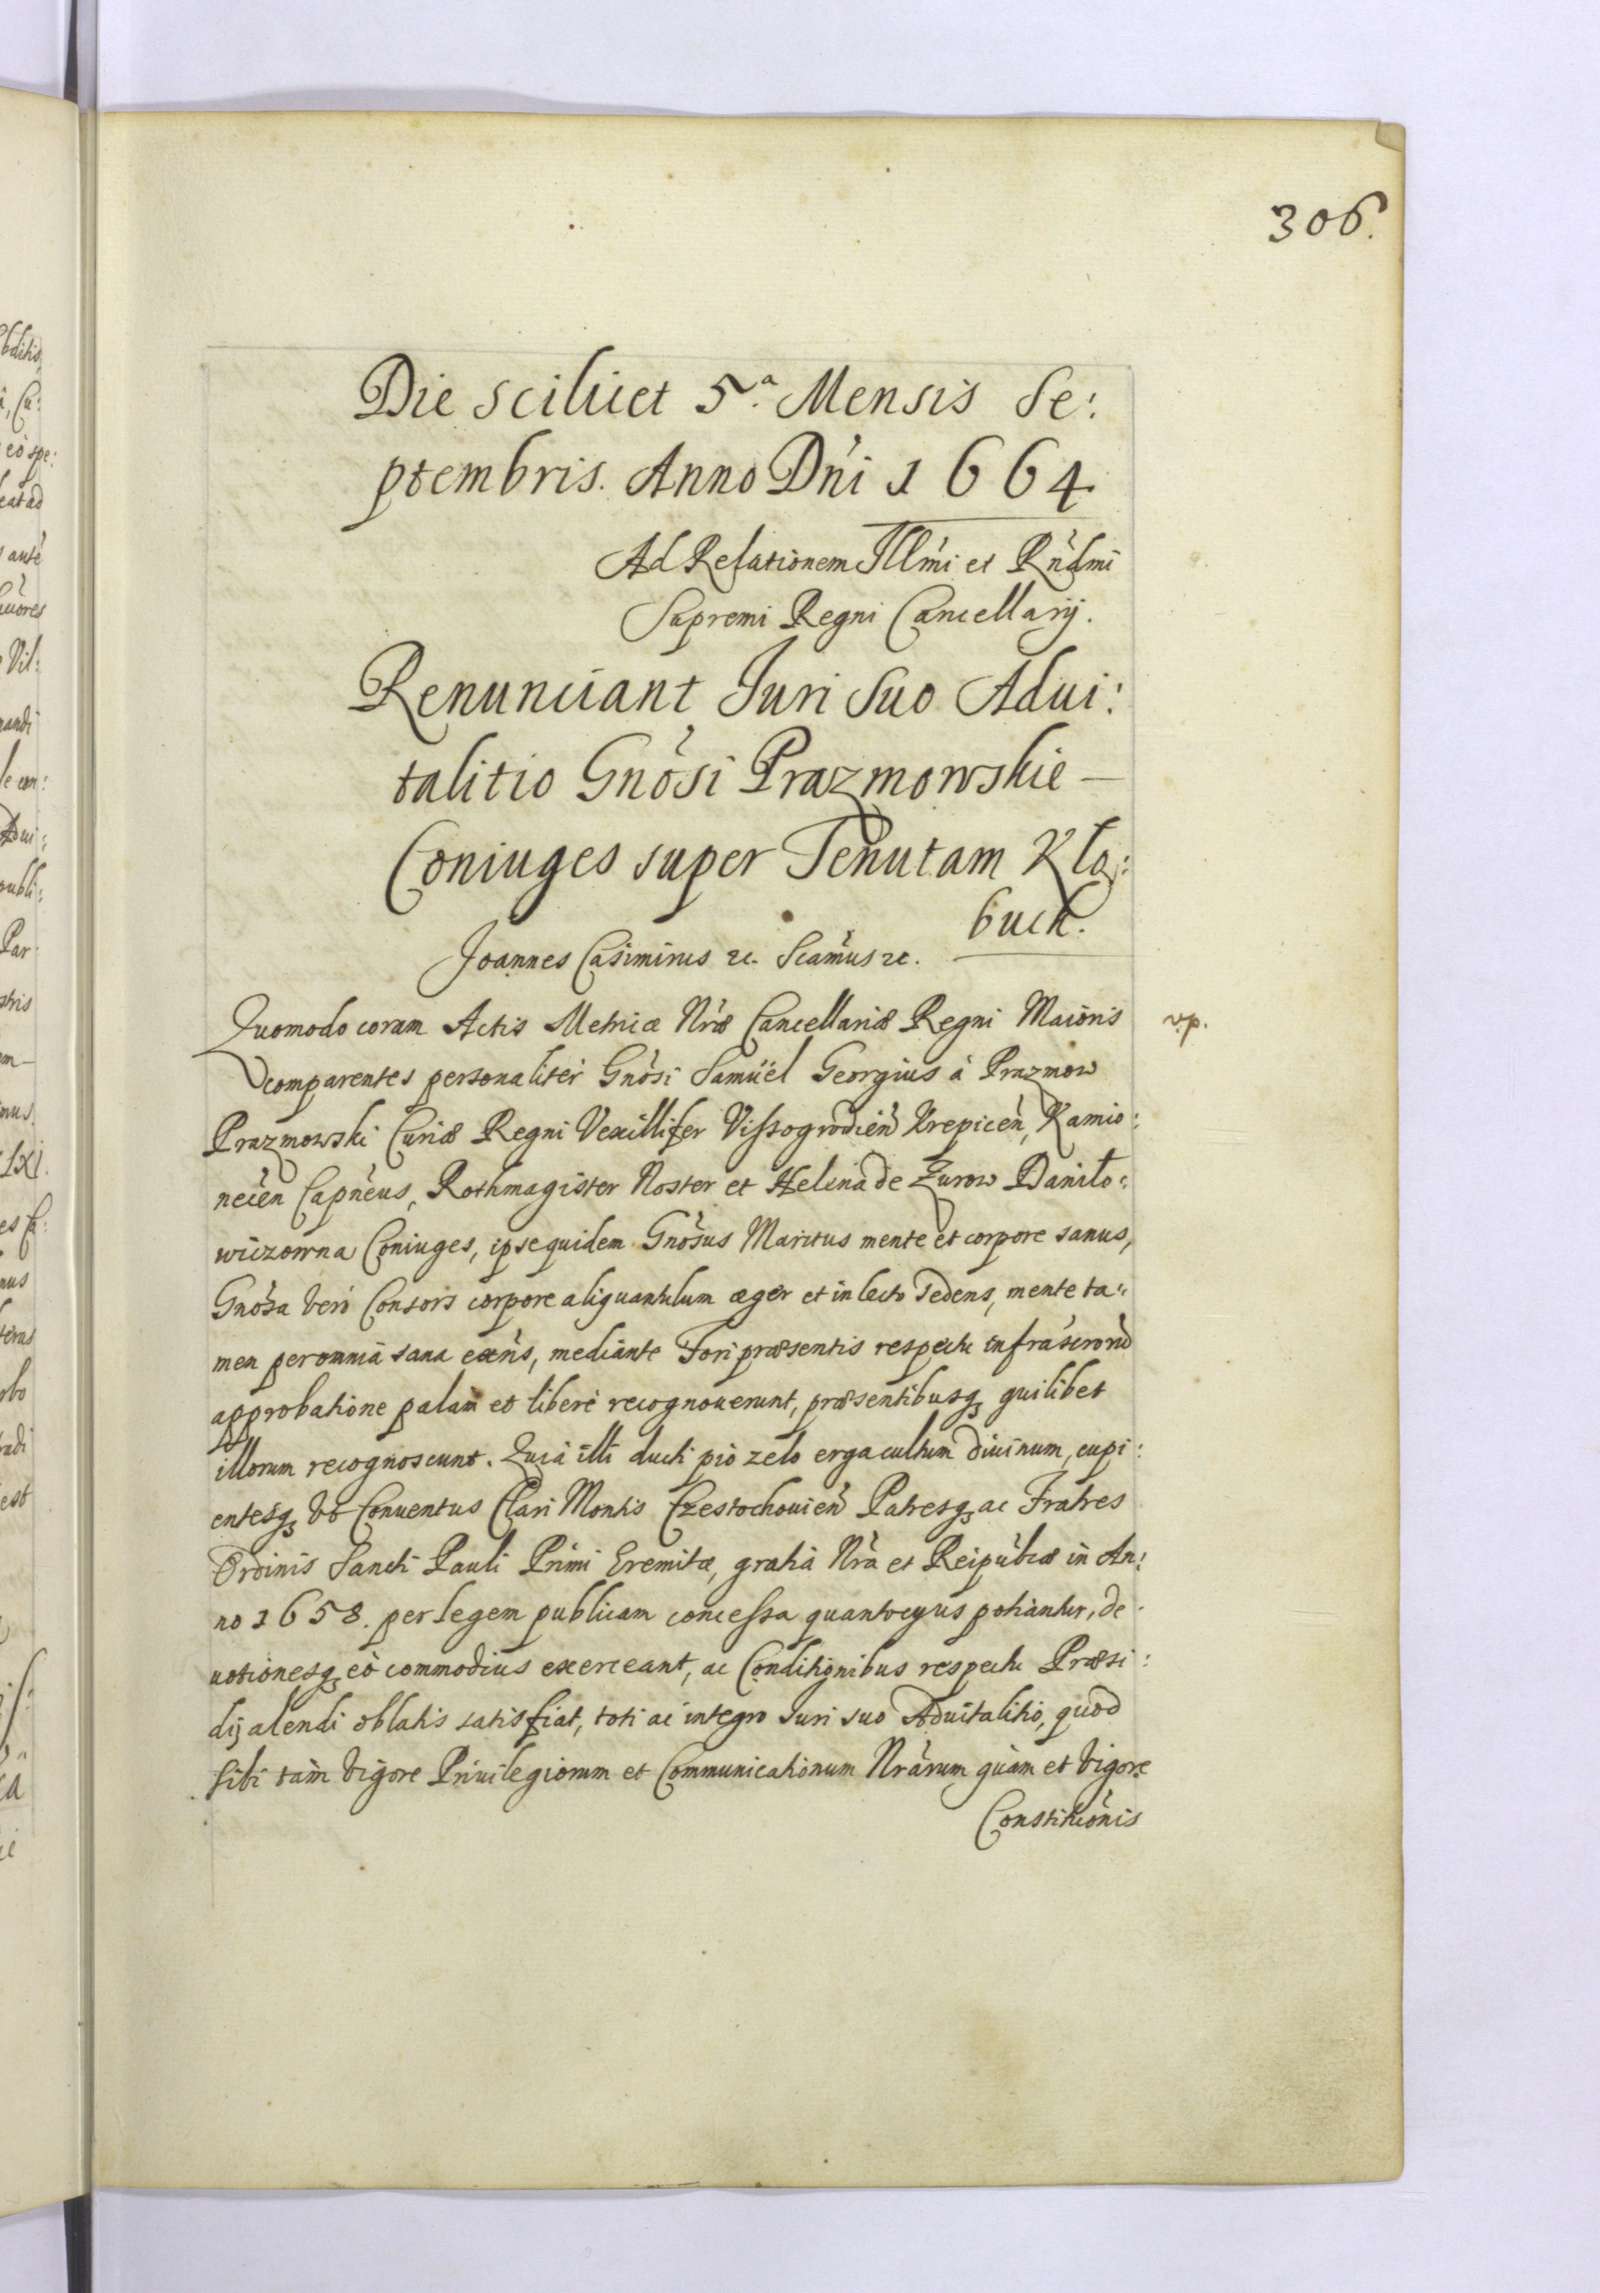 306.
Die scilicet 5.ª Mensis Se:
ptembris. Anno Dni 1664
Ad Relationem Illmi et Rndmi
Supremi Regni Cancellarij.
Renunciant Juri suo Advi:
talitio Gnosi Prazmowskie —
Coniuges super Tenutam Kło:
buck.
Joannes Casimirus etc. Scamus etc.
Quomodo coram Actis Metricæ Nræ Cancellariæ Regni Maioris
v.p.
comparentes personaliter Gnosi Samuël Georgius à Prazmow
Prazmowski Curiæ Regni Vexillifer Vissogrodien Krepicen, Kamio:
necen Capneus, Rothmagister Noster et Helena de Zurow Daniło:
wiczowna Coniuges, ipse quidem Gnosus Maritus mente et corpore sanus,
Gnosa vero Consors corpore aliquantulum æger et in lecto sedens, mente ta:
men per omnia sana exns, mediante Fori præsentis respectu infrascrorū
approbatione palam et liberè recognoverunt, præsentibusq; quilibet
illorum recognoscunt. Quia illi ducti pio zelo erga cultum divinum, cupi:
entesq; vt Conventus Clari Montis Czestochovien Patresq; ac Fratres
Ordinis Sancti Pauli Primi Eremitæ, gratiâ Nrâ et Reipublcæ in An:
no 1658. per legem publicam concessa quantocyus potiantur, de
votionesq; eò commodius exerceant, ac Conditionibus respectu Præsi:
dij alendi oblatis satisfiat, toti ac integro Juri suo Advitalitio, quod
sibi tam vigore Privilegiorum et Communicationum Nrarum quàm et vigore
Constitutionis